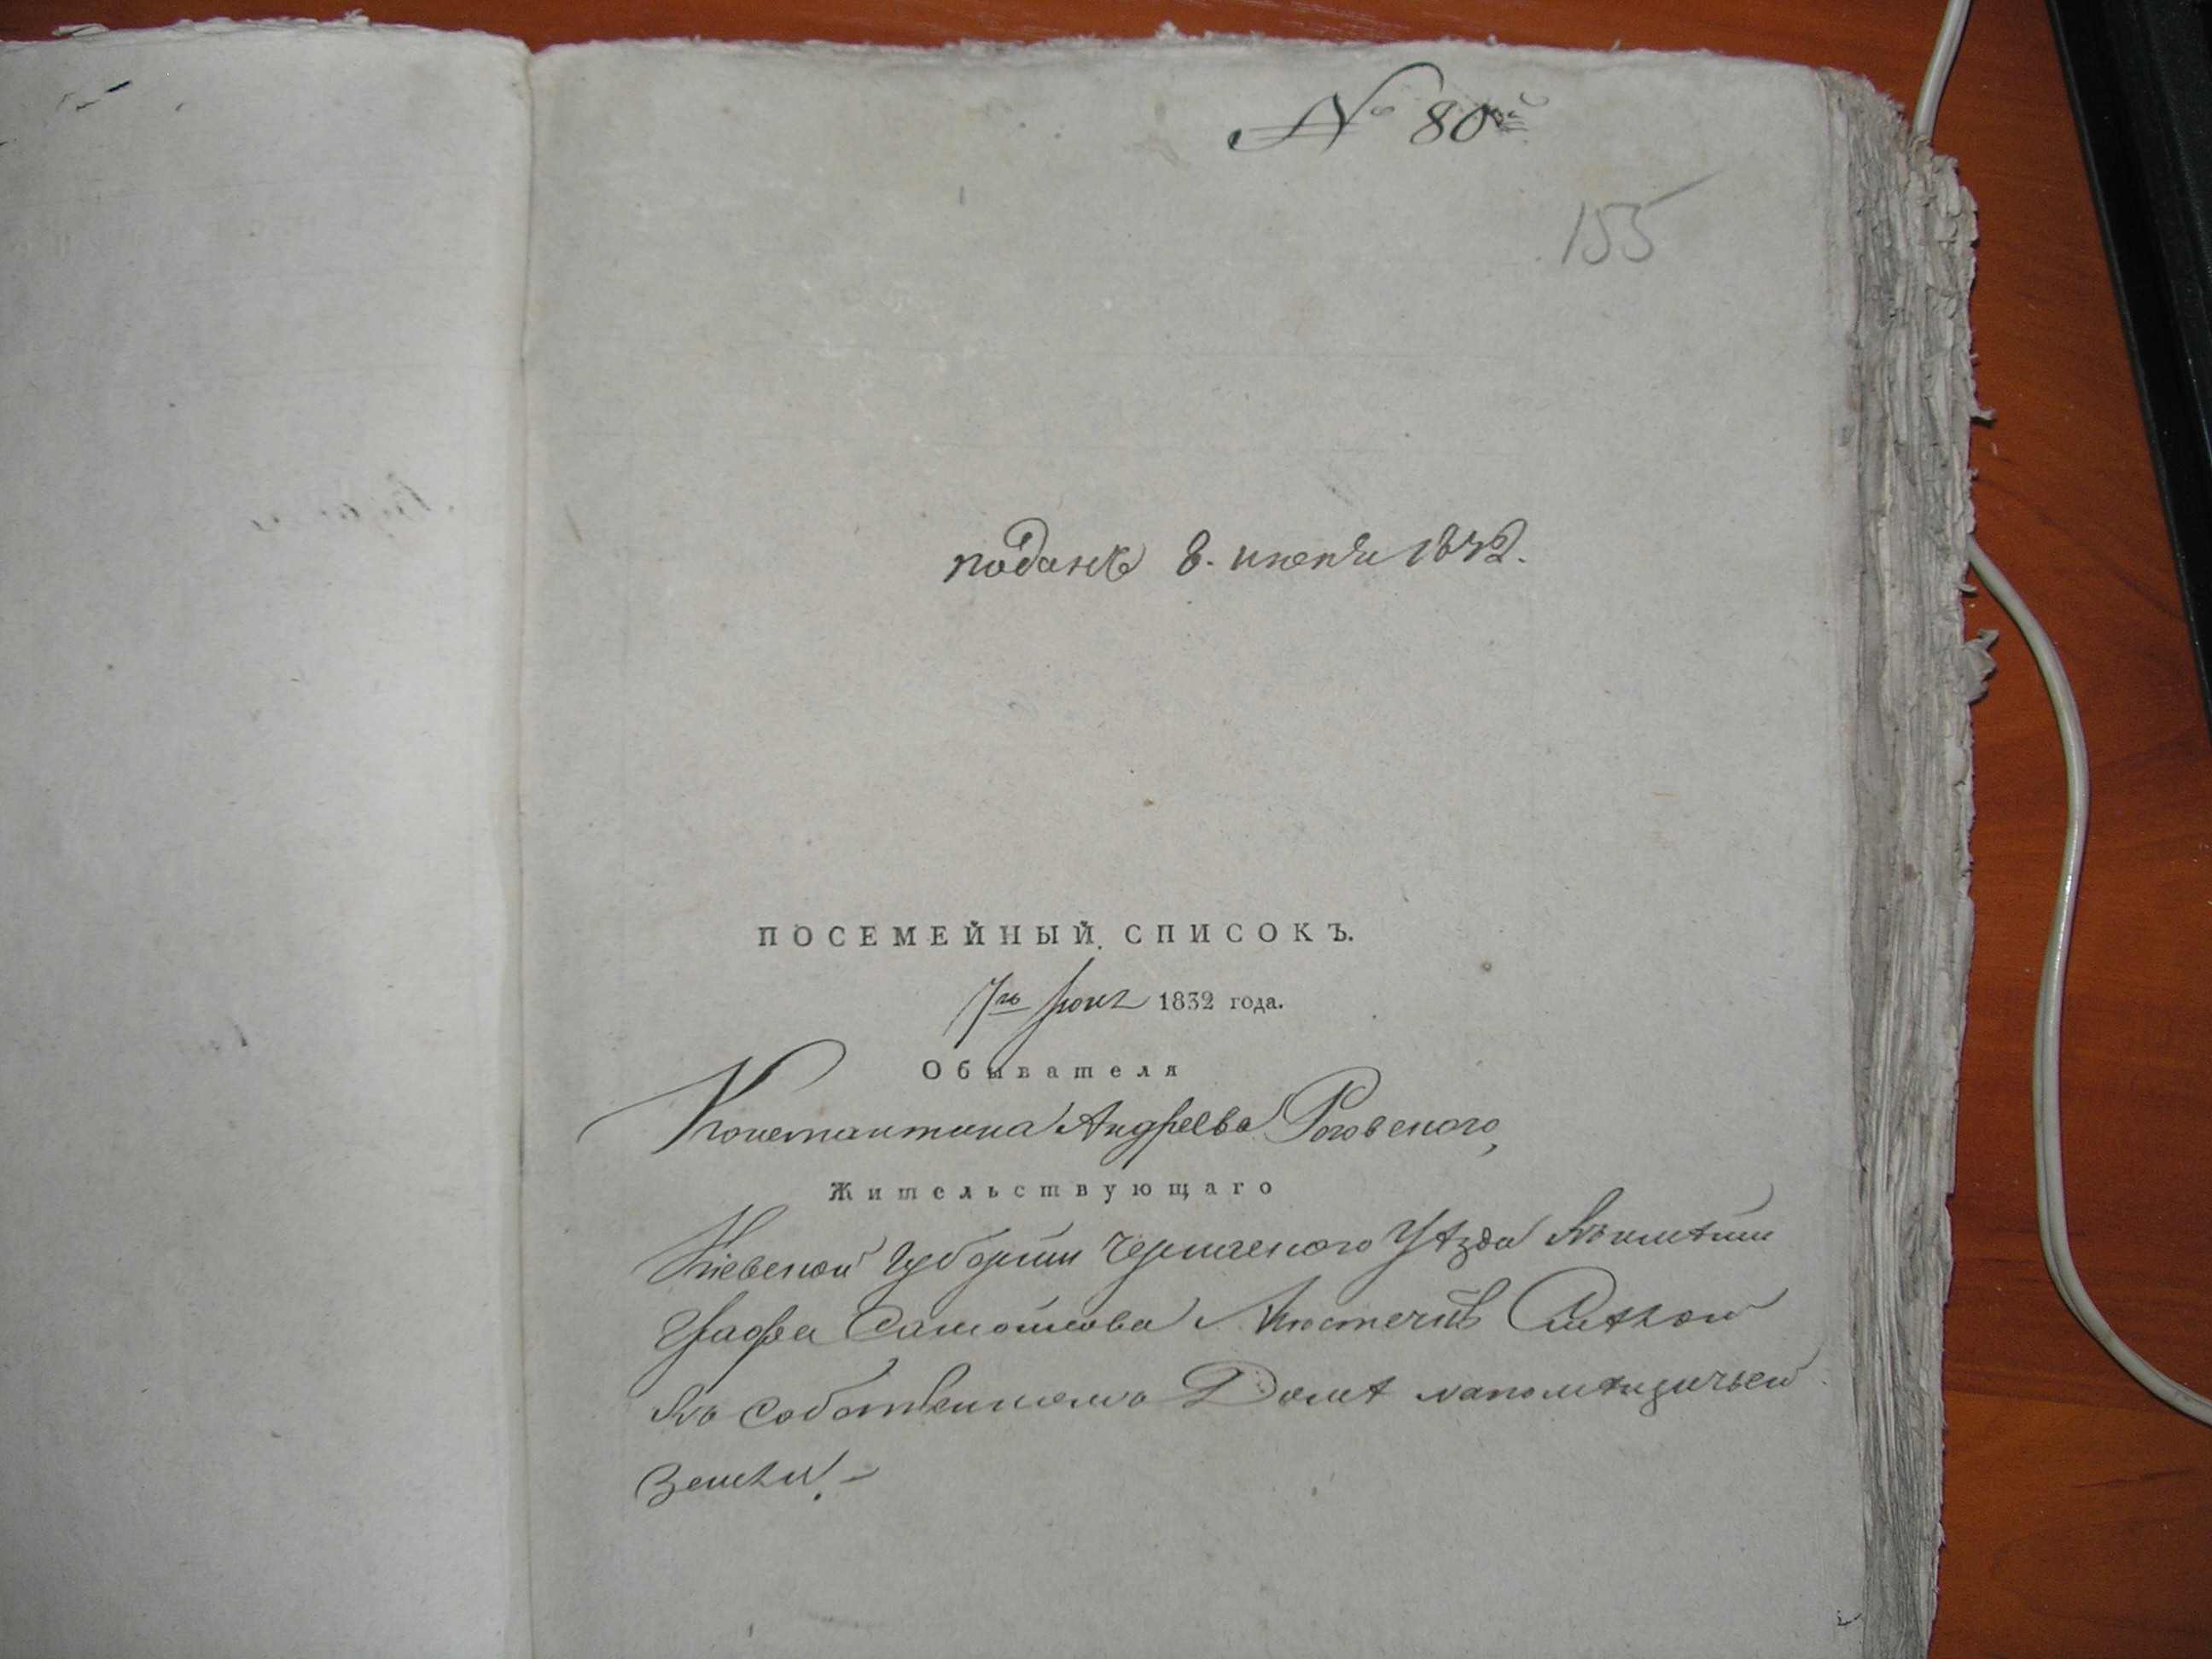 № 80й
155
поданъ 8. июня 1832.
ПОСЕМЕЙНЫЙ СПИСОКЪ.
7го Июня 1832 года.
Обывателя
Константина Андреева Роговского,
Жительствующаго
Кіевской Губерніи Черкаского Уѣзда Въимѣніи
Графа Самойлова Містечкѣ Смѣлой
Въ Собственномъ Домѣ напомѣщичьей
Земли. –